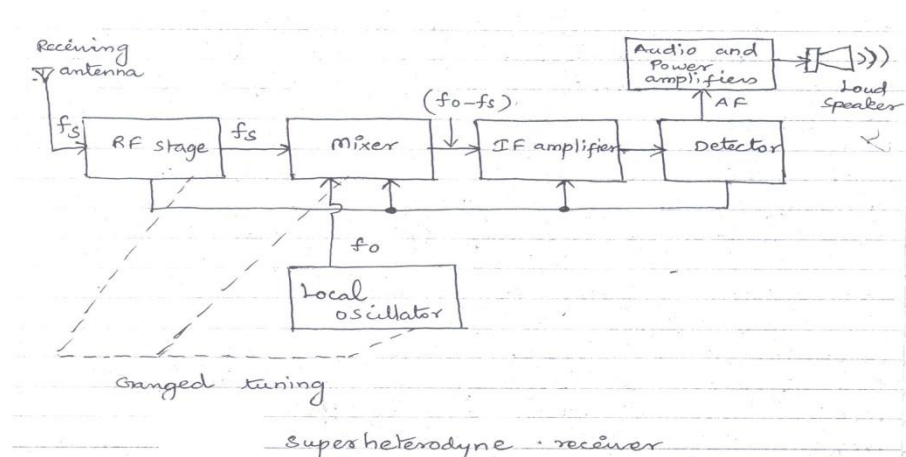 Receiving
antenna
fs
RF stage
fs
Mixer
(fo-fs)
IF amplifier
Detector
AF
Audio and
Power
amplifiers
Loud
Speaker
fo
Local
oscillator
Ganged tuning
Superheterodyne receiver